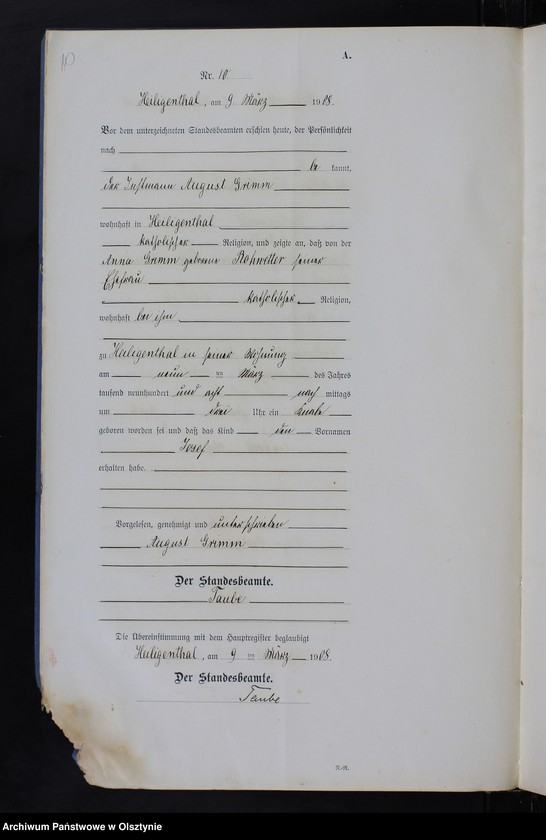 10
A.
Nr. 10
Heiligenthal, am 9 März 1908.
Vor dem unterzeichneten Standesbeamten erschien heute, der Persönlichkeit
nach
be kannt,
der Instmann August Grimm
wohnhaft in Heiligenthal
katholischer Religion, und zeigte an, daß von der
Anna Grimm geborene Rohwetter seiner
Ehefrau
katholischer Religion,
wohnhaft bei ihm
zu Heiligenthal in seiner Wohnung
am neun ten März des Jahres
tausend neunhundert und acht nach mittags
um drei Uhr ein Knabe
geboren worden sei und daß das Kind den Vornamen
Josef
erhalten habe.
Vorgelesen, genehmigt und unterschrieben
August Grimm
Der Standesbeamte.
Taube
Die Übereinstimmung mit dem Hauptregister beglaubigt
Heiligenthal, am 9 ten März 1908.
Der Standesbeamte.
Taube
Archiwum Państwowe w Olsztynie